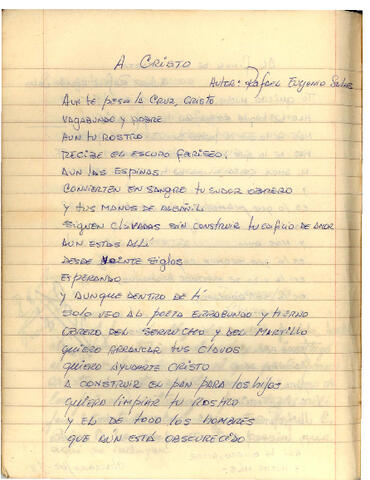 A CRISTO
Autor: Rafael Eugenio Salas
AUN TE PESA LA CRUZ, CRISTO
VAGABUNDO Y POBRE
AUN TU ROSTRO
RECIBE EL ESCUPO FARISEO
AUN LAS ESPINAS
CONVIERTEN EN SANGRE tu SUDOR OBRERO
Y tus MANOS DE ALBAÑIL
SIGUEN CLAVADAS SIN CONSTRUIR tu EDIFICIO DE AMOR
AUN ESTAS ALLI
DESDE VEINTE SIGLOS
ESPERANDO
Y AUNQUE DENTRO DE ti
SOLO VEO AL POETA ERRABUNDO Y TIERNO
OBRERO DEL SERRUCHO Y DEL MARTILLO
QUIERO ARRANCAR TUS CLAVOS
QUIERO AYUDARTE CRISTO
A CONSTRUIR EL PAN PARA LOS HIJOS
QUIERO LIMPIAR TU ROSTRO
Y EL DE TODO LOS HOMBRES
QUE AÚN ESTÁ OBSCURECIDO